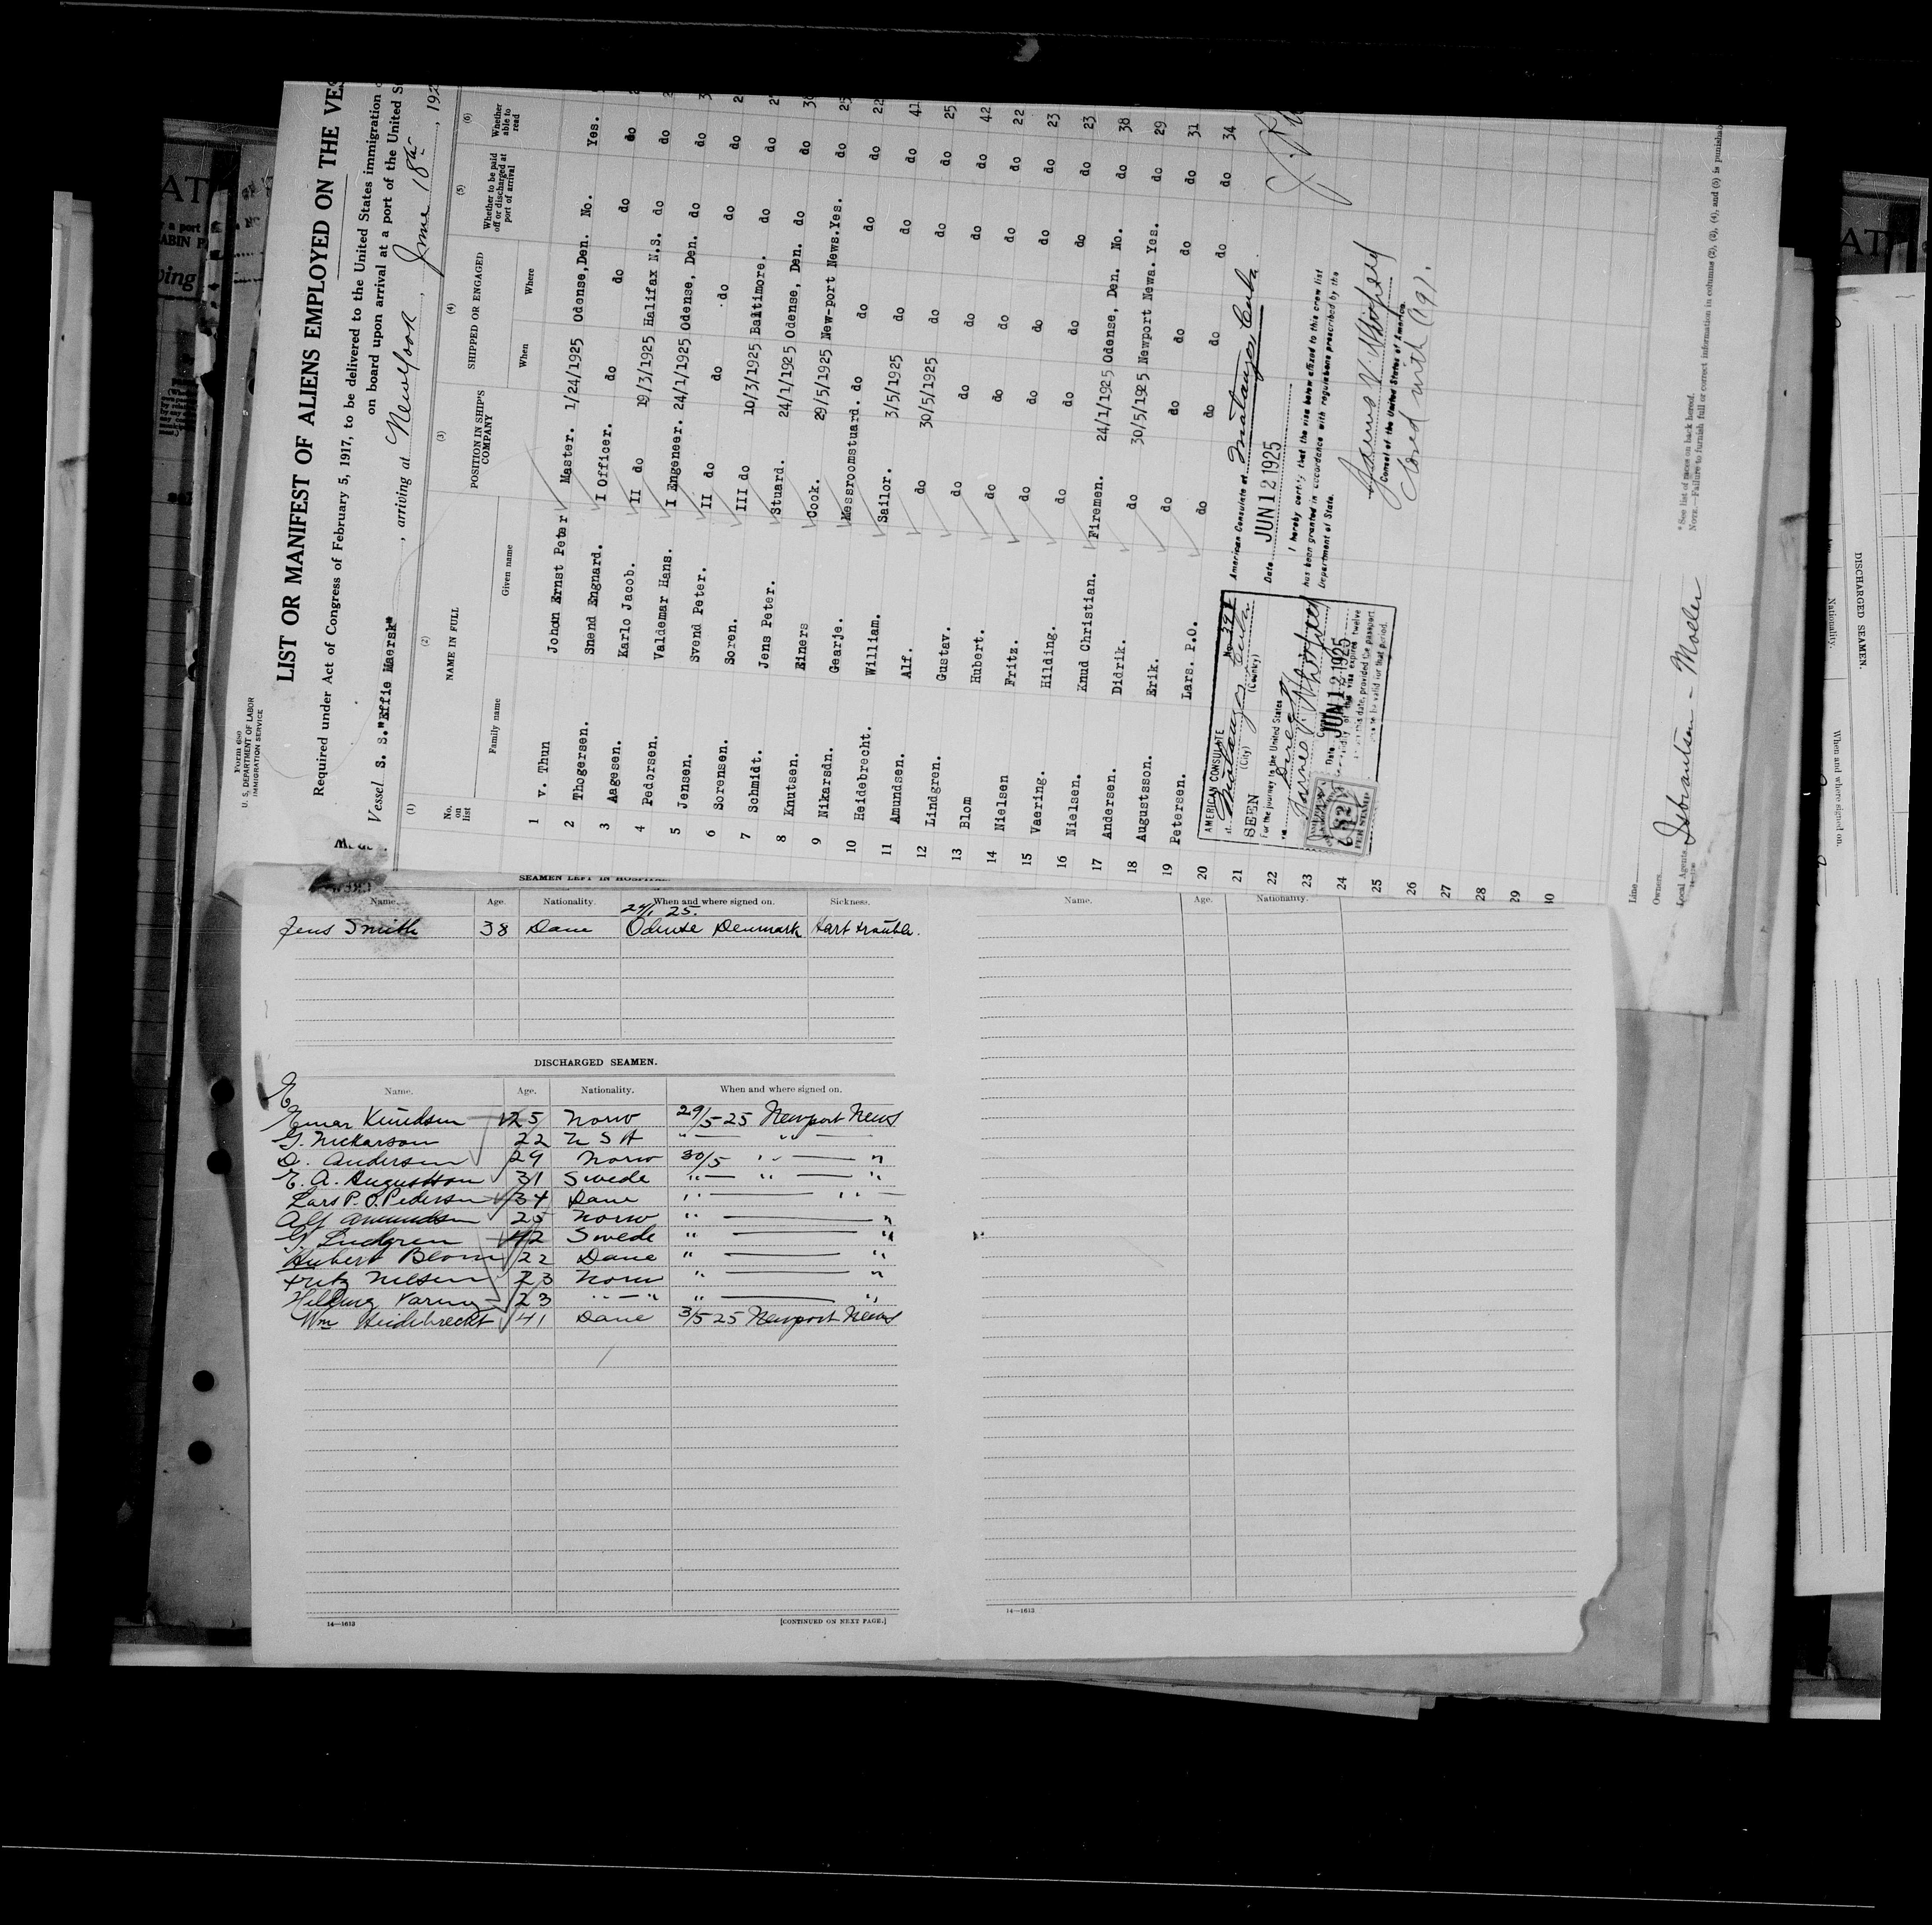 Form 680
U. S. DEPARTMENT OF LABOR
IMMIGRATION SERVICE
LIST OR MANIFEST OF ALIENS EMPLOYED ON THE VES
Required under Act of Congress of February 5, 1917, to be delivered to the United States immigration
on board upon arrival at a port of the United S
Vessel S. S. "Effie Maersk" , arriving at Newyork , June 18th , 192
(1) (2) (3) (4) (5) (6)
No. on list NAME IN FULL POSITION IN SHIP'S COMPANY SHIPPED OR ENGAGED Whether to be paid off or discharged at port of arrival Whether able to read
Family name Given name When Where
1 v. Thun Johan Ernst Peter Master. 1/24/1925 Odense,Den. No. Yes.
2 Thogersen. Snend Engnard. I Officer. do do do do
3 Aagesen. Karlo Jacob. II do 19/3/1925 Halifax N.S. do do
4 Pedersen. Valdemar Hans. I Engeneer. 24/1/1925 Odense, Den. do do
5 Jensen. Svend Peter. II do do do do do
6 Sorensen. Soren. III do 10/3/1925 Baltimore. do do
7 Schmidt. Jens Peter. Stuard. 24/1/1925 Odense, Den. do do
8 Knutsen. Einers Cook. 29/5/1925 New-port News. Yes. do
9 Nikarsdn. Gearje. Messroomstuard. do do do do
10 Heidebrecht. William. Sailor. 3/5/1925 do do do
11 Amundsen. Alf. do 30/5/1925 do do do
12 Lindgren. Gustav. do do do do do
13 Blom Hubert. do do do do do
14 Nielsen Fritz. do do do do do
15 Vaering. Hilding. do do do do do
16 Nielsen. Knud Christian. Firemen. 24/1/1925 Odense, Den. No. do
17 Andersen. Didrik. do 30/5/1925 Newport Newa. Yes. do
18 Augustsson. Erik. do do do do do
19 Petersen. Lars. P.O. do do do do do
20
21
22
23
24
25
26
27
28
29
30
25
22
41
25
42
22
23
23
38
29
31
34
AMERICAN CONSULATE
at Matanzas Cuba
(City) (Country)
SEEN
For the journey to the United States
Consul
Date JUN 12 1925
American Consulate at Matanzas Cuba.
Date JUN 12 1925
I hereby certify that the visa hereon affixed to this crew list
has been granted in accordance with regulations prescribed by the
Department of State.
Consul of the United States of America.
Closed with (19).
Line
Owners
Local Agents Isbrantsen - Moller
*See list of races on back hereof.
NOTE.—Failure to furnish full or correct information in columns (2), (3), (4), and (5) is punishab
SEAMEN LEFT IN HOSPITAL
Name. Age. Nationality. When and where signed on. Sickness.
24/1 25.
Jens Smith 38 Dane Odense Denmark Hart trouble.
Name. Age. Nationality.
DISCHARGED SEAMEN.
Name. Age. Nationality. When and where signed on.
Einar Knudsen 25 Norw 29/5-25 Newport News
G. Nickarson 22 U S A " — " —
D. Andersen 29 Norw 30/5 " — "
E. A. Augustsson 31 Swede " — " — "
Lars P. O. Pedersen 34 Dane " — " —
Alf Amundsen 25 Norw " — "
G Lindgren 42 Swede " — "
Hubert Blom 22 Dane " — "
Fritz Nielsen 23 Norw " — "
Hilding Varing 23 " — " " — "
Wm Heidebrecht 41 Dane 3/5 25 Newport News
14—1613
[CONTINUED ON NEXT PAGE.]
14—1613
DISCHARGED SEAMEN.
Nationality.
When and where signed on.